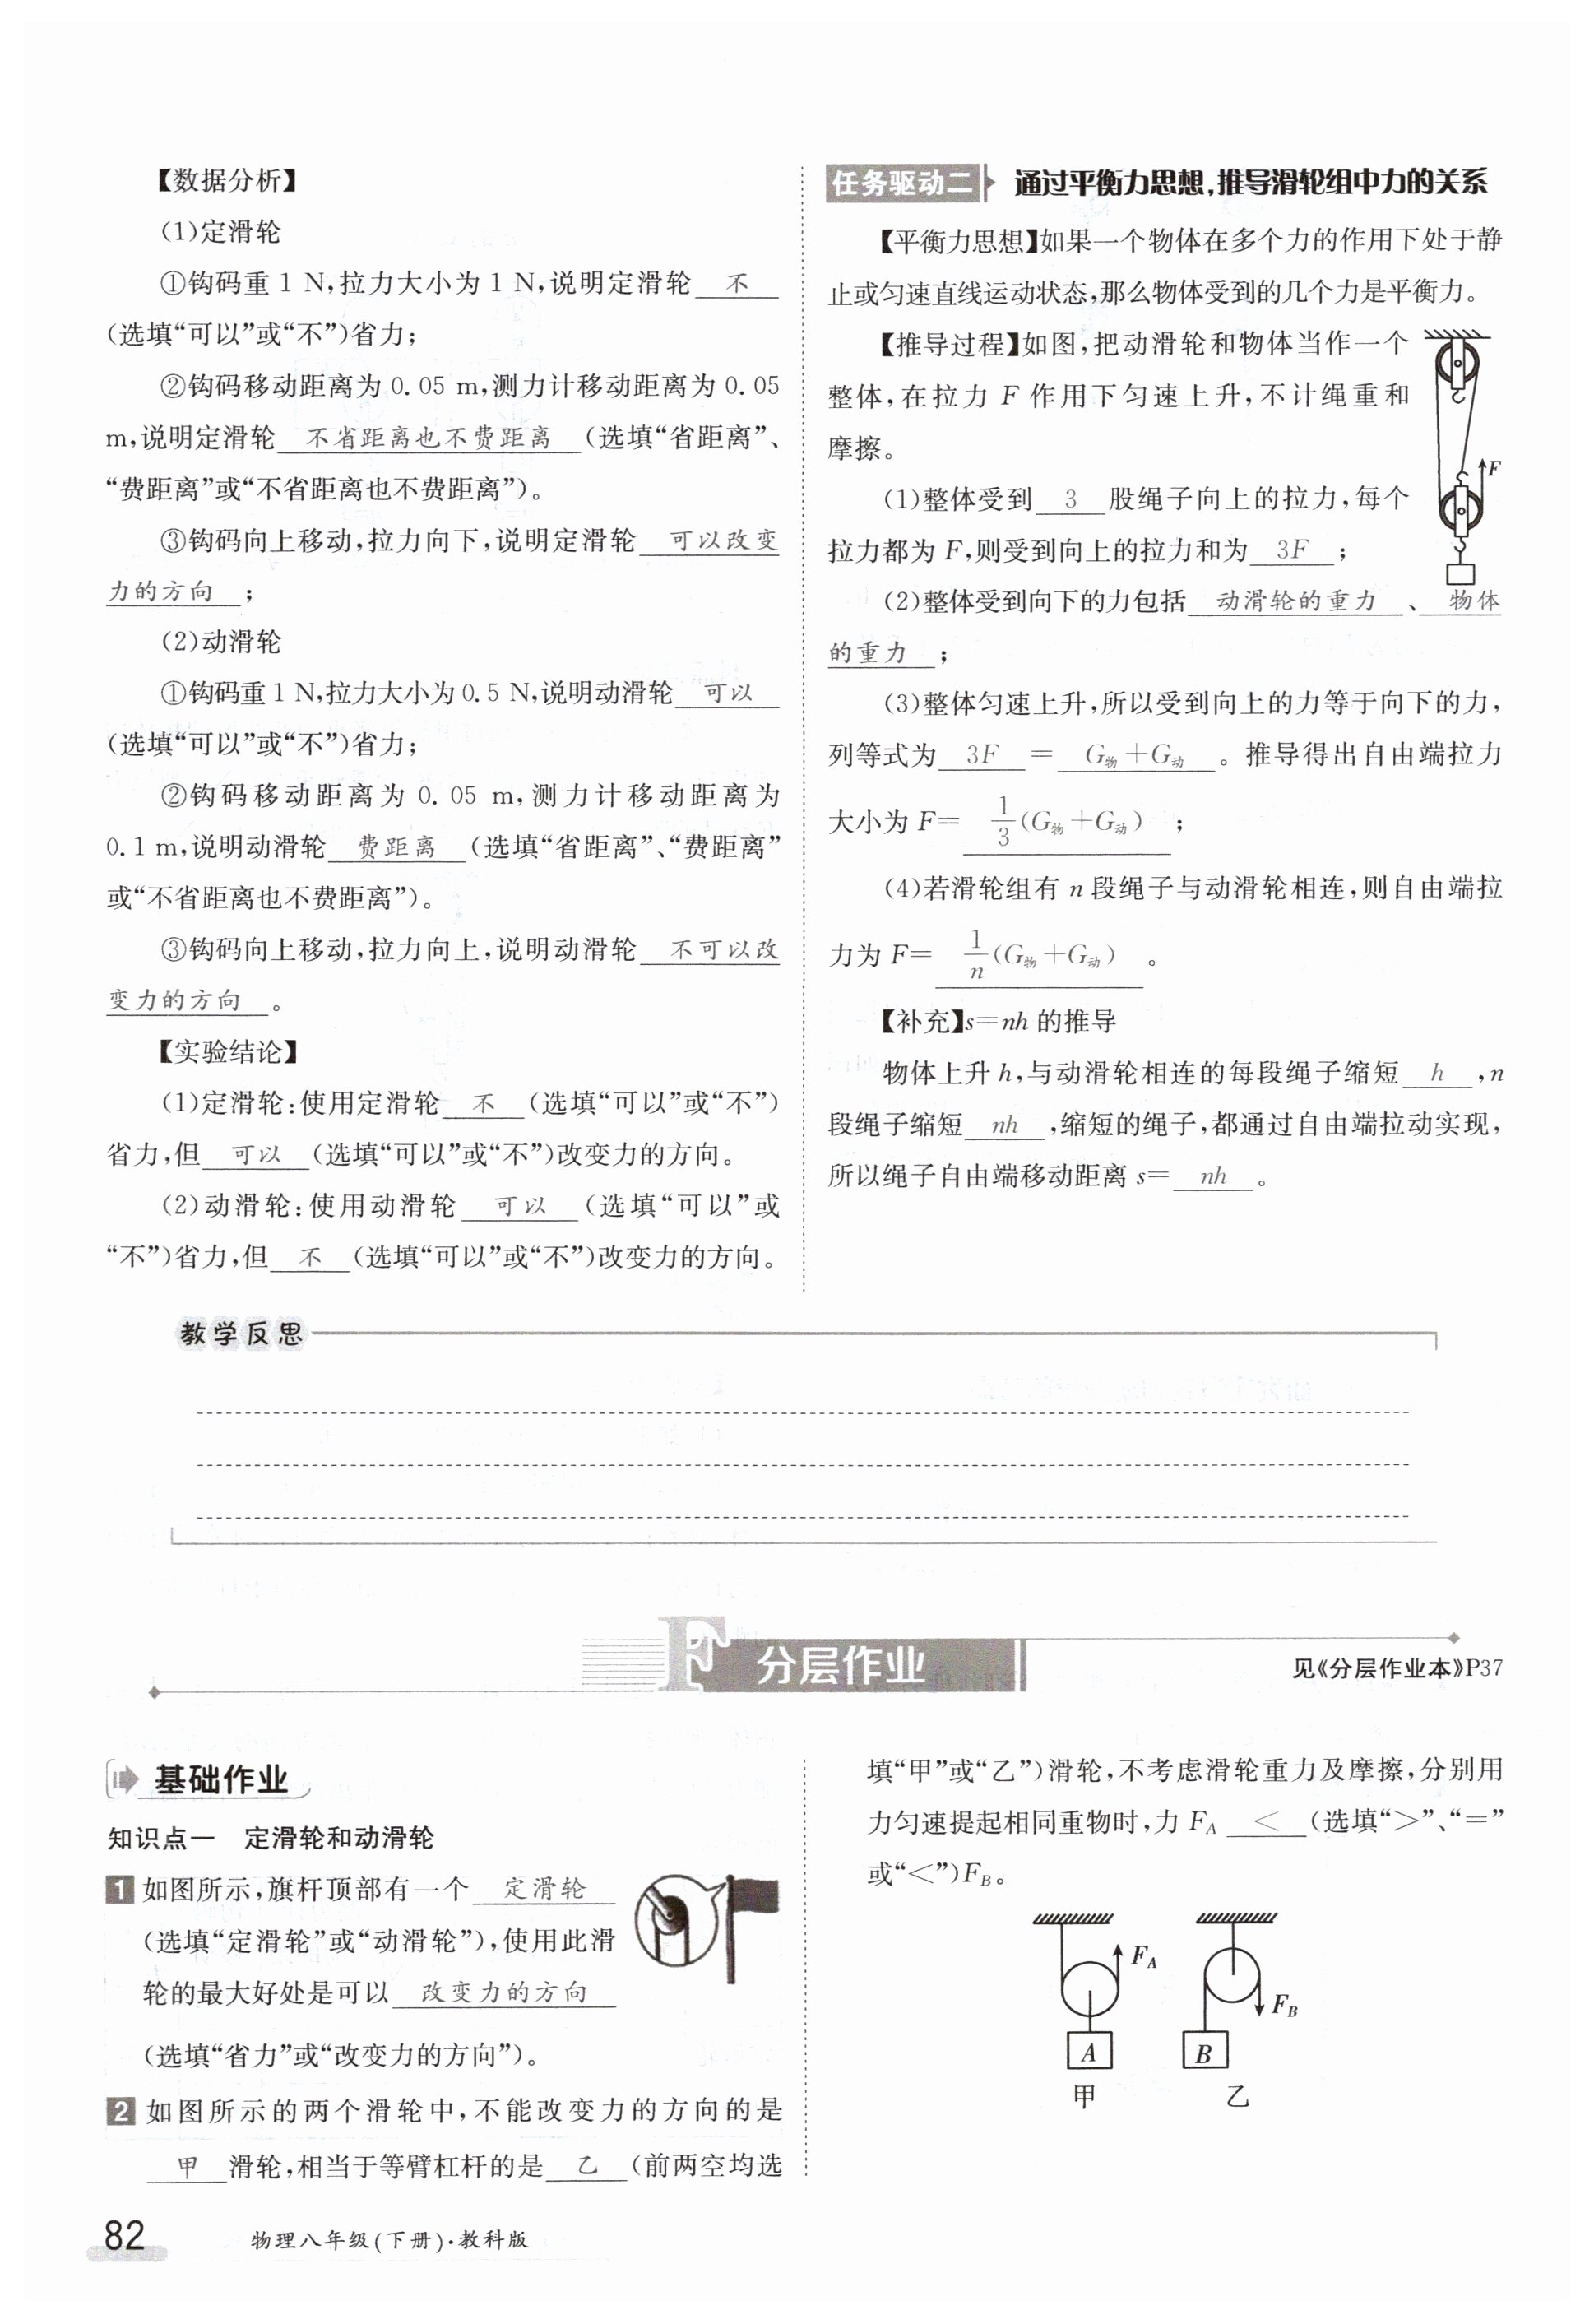 【数据分析】
(1)定滑轮
①钩码重 1 N,拉力大小为 1 N,说明定滑轮 不
(选填“可以”或“不”)省力;
②钩码移动距离为 0.05 m,测力计移动距离为 0.05
m,说明定滑轮 不省距离也不费距离 (选填“省距离”、
“费距离”或“不省距离也不费距离”)。
③钩码向上移动,拉力向下,说明定滑轮 可以改变
力的方向 ;
(2)动滑轮
①钩码重 1 N,拉力大小为 0.5 N,说明动滑轮 可以
(选填“可以”或“不”)省力;
②钩码移动距离为 0.05 m,测力计移动距离为
0.1 m,说明动滑轮 费距离 (选填“省距离”、“费距离”
或“不省距离也不费距离”)。
③钩码向上移动,拉力向上,说明动滑轮 不可以改
变力的方向 。
【实验结论】
(1)定滑轮:使用定滑轮 不 (选填“可以”或“不”)
省力,但 可以 (选填“可以”或“不”)改变力的方向。
(2)动滑轮:使用动滑轮 可以 (选填“可以”或
“不”)省力,但 不 (选填“可以”或“不”)改变力的方向。
任务驱动二 通过平衡力思想,推导滑轮组中力的关系
【平衡力思想】如果一个物体在多个力的作用下处于静
止或匀速直线运动状态,那么物体受到的几个力是平衡力。
【推导过程】如图,把动滑轮和物体当作一个
整体,在拉力 F 作用下匀速上升,不计绳重和
摩擦。
F
(1)整体受到 3 股绳子向上的拉力,每个
拉力都为 F,则受到向上的拉力和为 3F ;
(2)整体受到向下的力包括 动滑轮的重力 、 物体
的重力 ;
(3)整体匀速上升,所以受到向上的力等于向下的力,
列等式为 3F = G物+G动 。推导得出自由端拉力
大小为 F= 1/3(G物+G动) ;
(4)若滑轮组有 n 段绳子与动滑轮相连,则自由端拉
力为 F= 1/n(G物+G动) 。
【补充】s=nh 的推导
物体上升 h,与动滑轮相连的每段绳子缩短 h ,n
段绳子缩短 nh ,缩短的绳子,都通过自由端拉动实现,
所以绳子自由端移动距离 s= nh 。
教学反思
F 分层作业
见《分层作业本》P37
基础作业
知识点一 定滑轮和动滑轮
1 如图所示,旗杆顶部有一个 定滑轮
(选填“定滑轮”或“动滑轮”),使用此滑
轮的最大好处是可以 改变力的方向
(选填“省力”或“改变力的方向”)。
2 如图所示的两个滑轮中,不能改变力的方向的是
甲 滑轮,相当于等臂杠杆的是 乙 (前两空均选
填“甲”或“乙”)滑轮,不考虑滑轮重力及摩擦,分别用
力匀速提起相同重物时,力 FA < (选填“>”、“=”
或“<”)FB。
FA
FB
A B
甲 乙
82 物理八年级(下册)·教科版